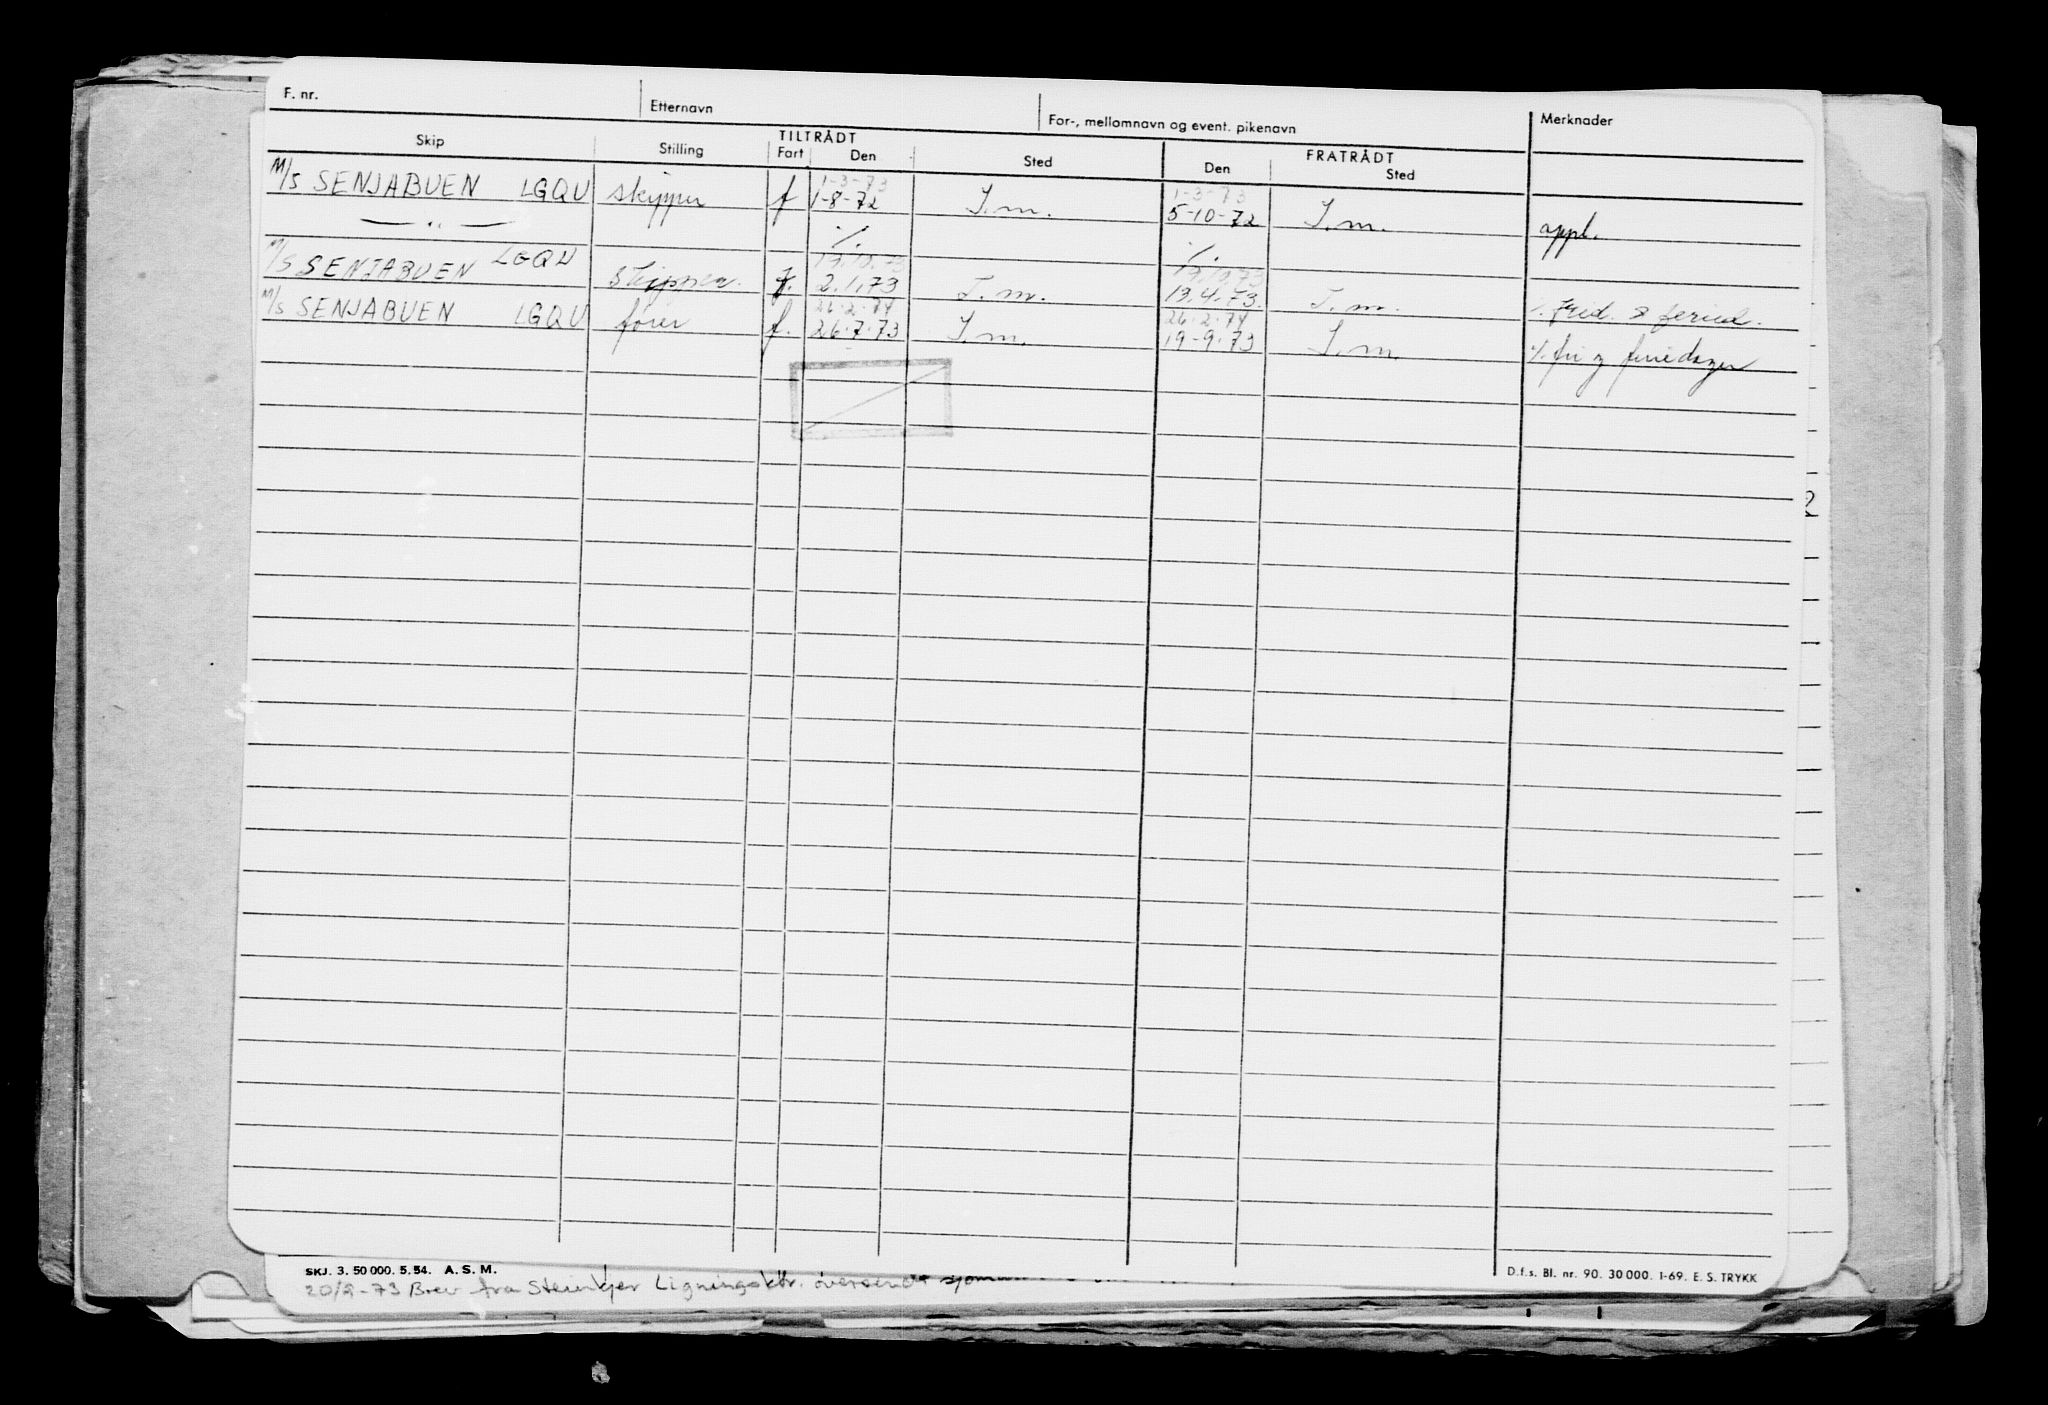 F. nr. Etternavn For-, mellomnavn og event. pikenavn Merknader
TILTRÅDT FRATRÅDT
Skip Stilling Fart Den Sted Den Sted
1-3-73 1-3-73
M/S SENJABUEN LGQU skipper f 1-8-72 I.m. 5-10-72 I.m. appl.
— " — ./. ./.
19.10.73 19.10.73
M/S SENJABUEN LGQU skipper. f. 2.1.73 I.m. 13.4.73. I.m. ./. frid. & feried.
26.2.74 26.2.74
M/S SENJABUEN LGQU fører f. 26.7.73 I.m. 19-9-73 I.m. ./. fri og feriedager
SKJ. 3. 50 000. 5. 54. A. S. M. D.f.s. Bl. nr. 90. 30 000. 1-69. E. S. TRYKK
20/9-73 Brev fra Steinkjer Ligningsktr. oversendt